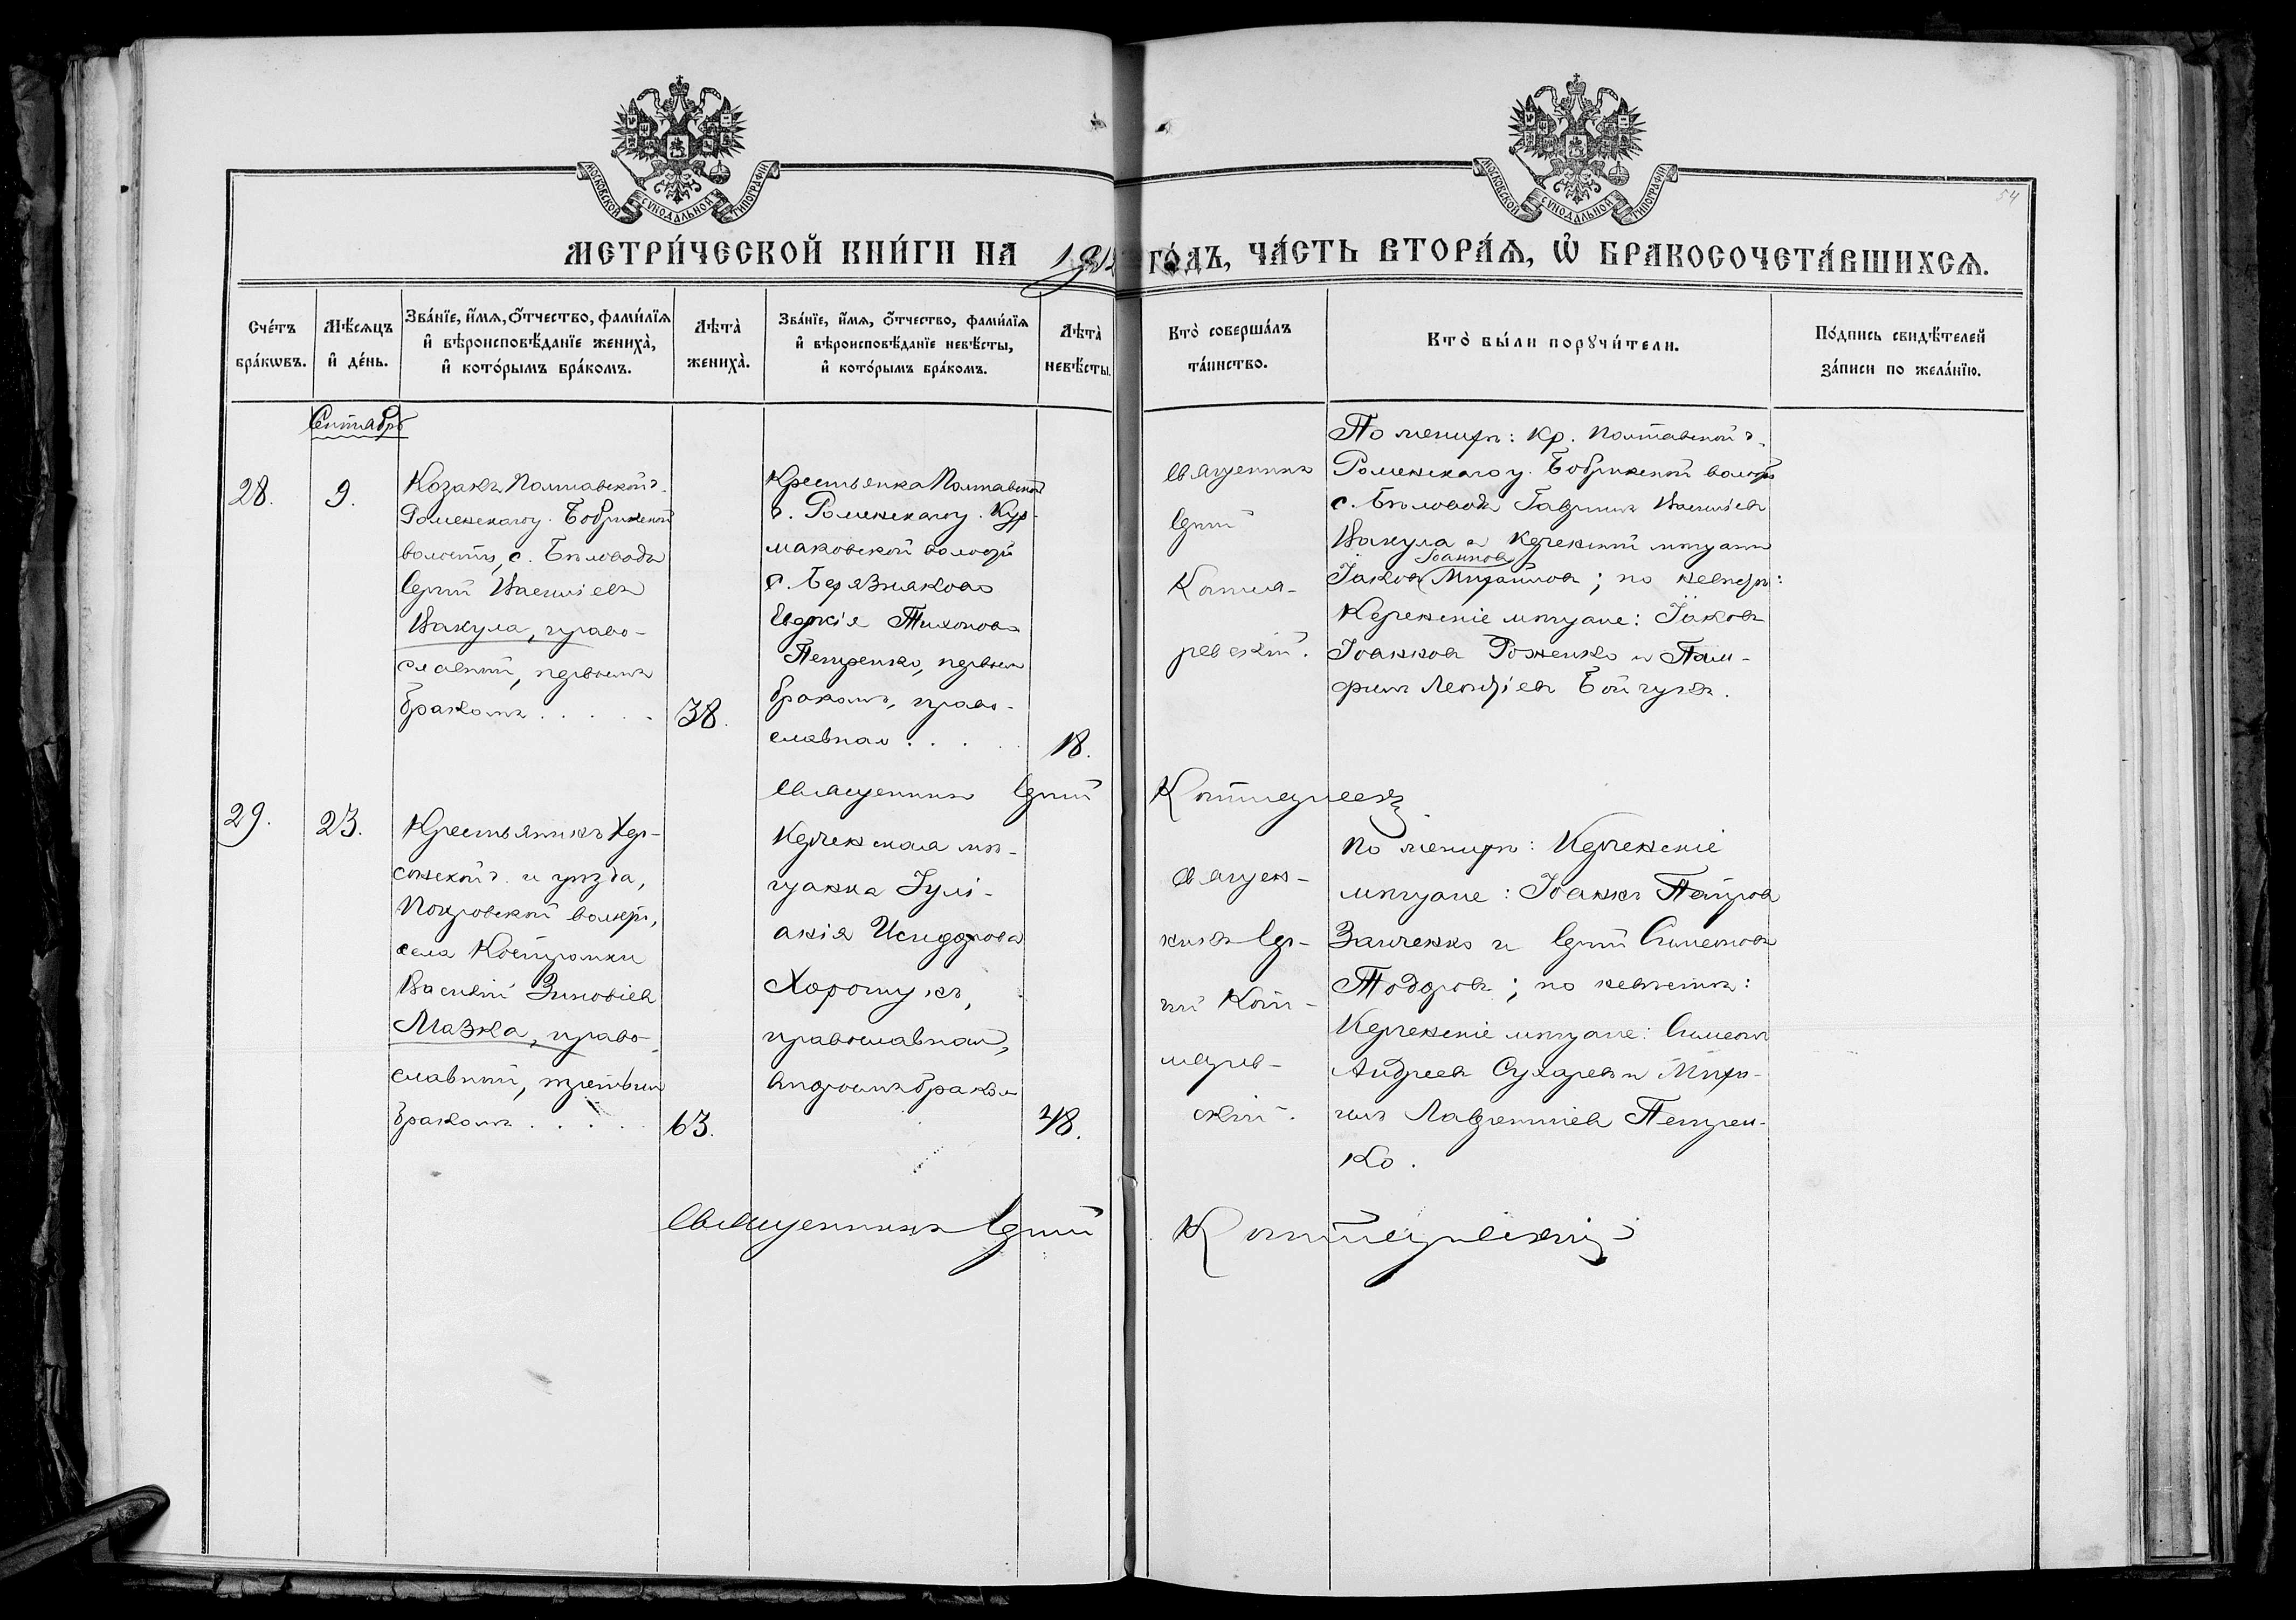 МОСКОВСКОЙ СѴНОДАЛЬНОЙ ТИПОГРАФІИ
МОСКОВСКОЙ СѴНОДАЛЬНОЙ ТИПОГРАФІИ
54
МЕТРИ́ЧЕСКОЙ КНИ́ГИ НА 191 ГО́ДЪ, ЧА́СТЬ ВТОРА́Я, Ѽ БРАКОСОЧЕТА́ВШИХСЯ.
Сче́тъ
бра́кѡвъ.
Мѣ́сяцъ
и҆ де́нь.
Зва́нїе, и҆́мя, ѻ҆́тчество, фами́лїя
и҆ вѣроисповѣ́данїе жениха̀,
и҆ кото́рымъ бра́комъ.
Лѣта̀
жениха̀.
Зва́нїе, и҆́мя, ѻ҆́тчество, фами́лїя
и҆ вѣроисповѣ́данїе невѣ́сты,
и҆ кото́рымъ бра́комъ.
Лѣта̀
невѣ́сты.
Кто̀ соверша́лъ
та́инство.
Кто̀ бы́ли порꙋчи́тели.
По́дпись свидѣ́телей
за́писи по жела́нїю.
Сентябрь
28.
9.
Козакъ Полтавской г.
Роменскаго у. Бобрикской
волости, с. Бѣловодъ
Сергій Васильевъ
Вакула, право-
славный, первымъ
бракомъ . . . . .
38.
Крестьянка Полтавской
г. Роменскаго у.
маковской волости
с.
Евдокія Тихонова
Петренко, первымъ
бракомъ, право-
славная . . . .
18.
Священникъ
Сергій
Котля-
ревскій.
По женихѣ: Кр. Полтавской г.
Роменскаго у. Бобрикской волости
с. Бѣловодъ Гавріилъ Васильевъ
Вакула и Керченскій мѣщанинъ
Іоанновъ
Іаковъ Михайловъ; по невѣстѣ:
Керченскіе мѣщане: Іаковъ
Іоанновъ Роженко и Пам-
филъ
Священникъ Сергій Котляревскій
29.
23.
Крестьянинъ Хер-
сонской г. и уѣзда,
Покровской волости,
села Костромки
Василій Зиновіевъ
Мазка, право-
славный, третьимъ
бракомъ . . . . .
63.
Керченская мѣ-
щанка Іулі-
анія Исидорова
Хорошунъ,
православная,
вторымъ бракомъ
48.
Священ-
никъ Сер-
гій Кот-
лярев-
скій.
По женихѣ: Керченскіе
мѣщане: Іоаннъ Петровъ
Заиченко и Сергій Симеоновъ
Тодоровъ; по невѣстѣ:
Керченскіе мѣщане: Симеонъ
Андреевъ Сухаревъ и Миха-
илъ Лаврентіевъ Петрен-
ко.
Священникъ Сергій Котляревскій